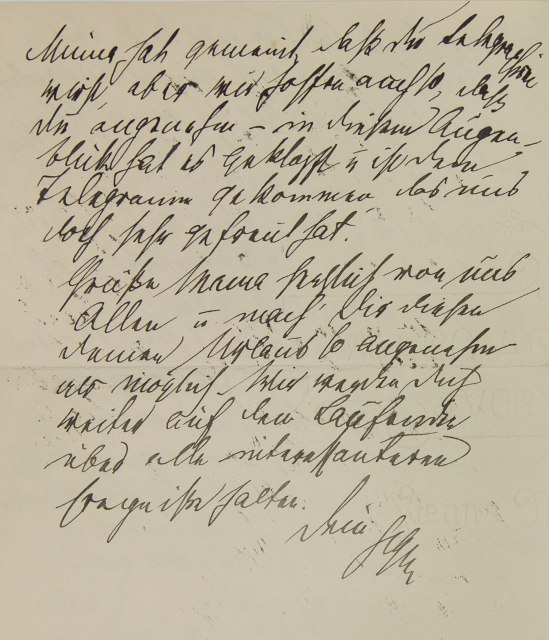 Minna hat gemeint, daß du telegraphieren
wirst aber wir hoffen auch so, daß
du angenehm – in diesem Augen-
blick hat es geklopft u ist dein
Telegramm gekommen das uns
doch sehr gefreut hat.
Grüße Mama herzlich von uns
Allen u mach Dir diesen
deinen Urlaub so angenehm
als möglich. Wir werden dich
weiter auf dem Laufenden
über alle interessanteren
Ereigniße halten.
Dein